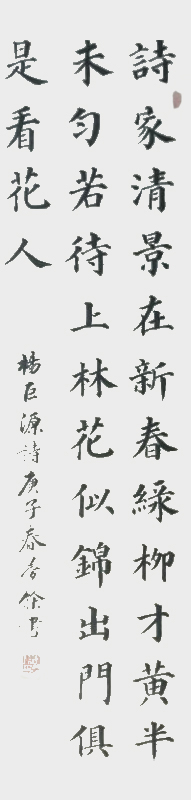 詩家清景在新春綠柳才黃半
未勻若待上林花似錦出門俱
是看花人
楊巨源詩庚子春